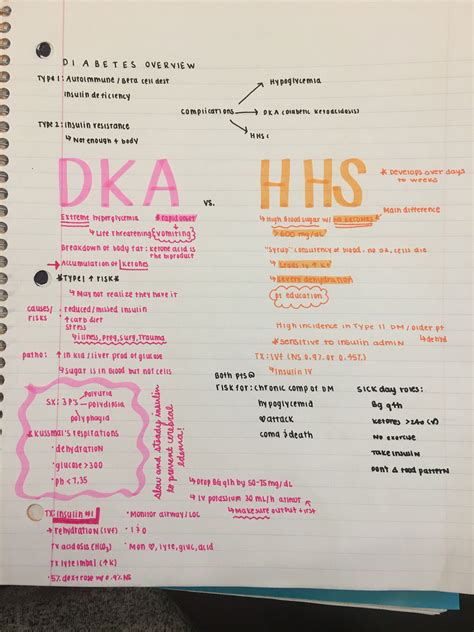 DIABETES OVERVIEW
Type 1: Autoimmune / Beta cell dest
insulin deficiency
Type 2: insulin resistance
↳ Not enough + body
complications
→ Hypoglycemia
→ DKA (diabetic ketoacidosis)
→ HHS
DKA vs. HHS
* Develops over days to weeks
Extreme hyperglycemia *rapid onset
↳ Life threatening (vomiting)
Breakdown of body fat: ketone acid is the biproduct
→ Accumulation of ketones
*TYPE 1 ↑ RISK*
↳ May not realize they have it
causes/risks
· reduced/missed insulin
↑ carb diet
stress
↳ illness, preg, surg, trauma
patho: ↑ in kid/liver prod of glucose
↳ sugar is in blood but not cells
SX: 3 P's
polyuria
polydipsia
polyphagia
kussmal's respirations
· dehydration
· glucose > 300
· ph < 7.35
slow and steady insulin to prevent cerebral edema!
TX: insulin #1
→ rehydration (IVF)
TX acidosis (HCO3)
TX lyte imbal (↑K)
· 5% dextrose w/ 0.9% NS
· Monitor airway/LOC
· I & O
· Mon ♡, lyte, gluc, acid
↳ High Blood sugar w/ no ketones
Main difference
↳ >600 mg/dL
"syrup" consistency of blood. no O2, cells die
↳ severe dehydration
pt education
High incidence in Type II DM/older pt
*sensitive to insulin admin
TX: IVF (NS 0.9% or 0.45%)
↳ insulin IV
Both pts @
risk for: chronic comp of DM
hypoglycemia
♡ attack
coma & death
sick day roles:
Bg q4h
ketones >240 (U)
No exercise
Take insulin
Don't ∆ food pattern
↳ Drop BG q1h by 50-75 mg/dL
↳ IV potassium
↳ Make sure output